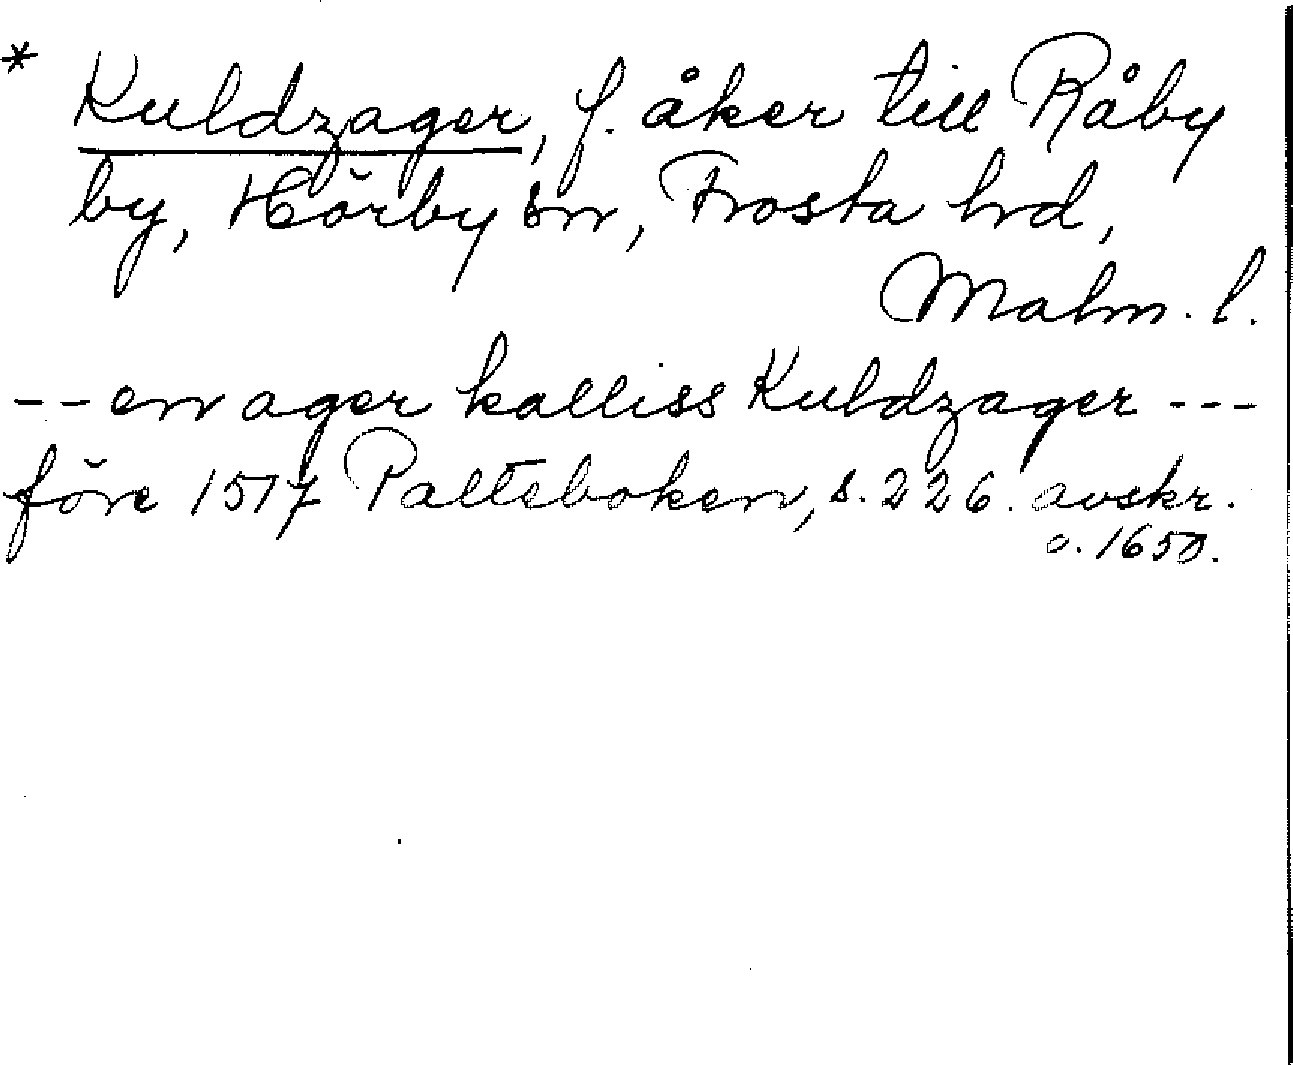 * Kuldzager, f. åker till Råby
by, Hörby sn, Frosta hd,
Malm. l.
-- en ager kalliss Kuldzager ---
före 1517 Palteboken, s. 226. avskr.
o. 1650.